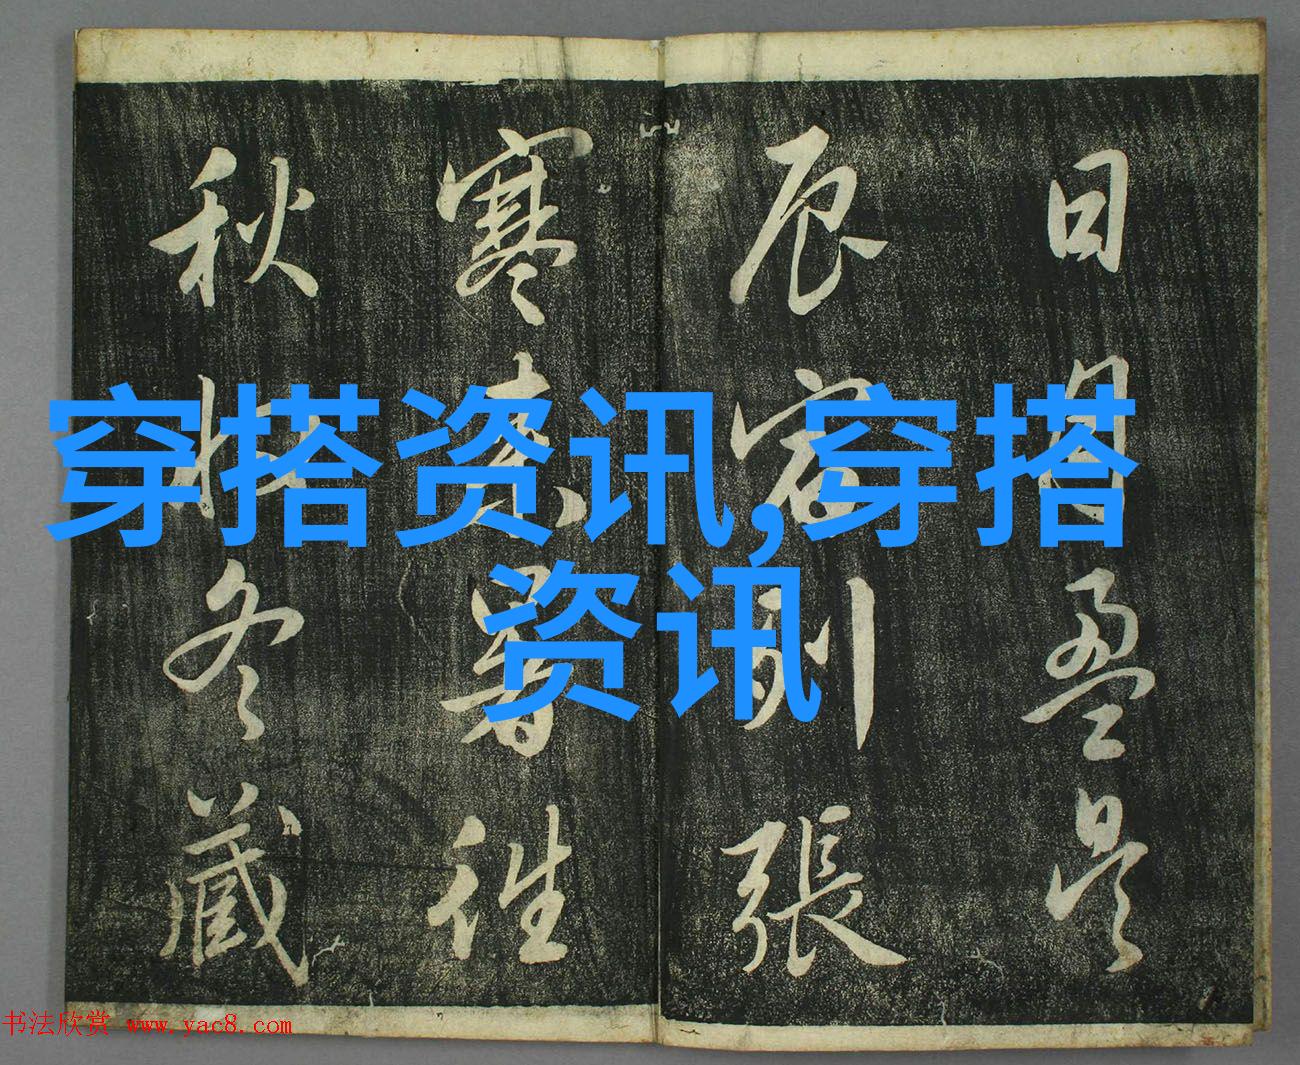 日月盈昃
辰宿列張
寒来暑往
秋收冬藏
穿搭资讯,穿搭
资讯
书法欣赏 www.yac8.com